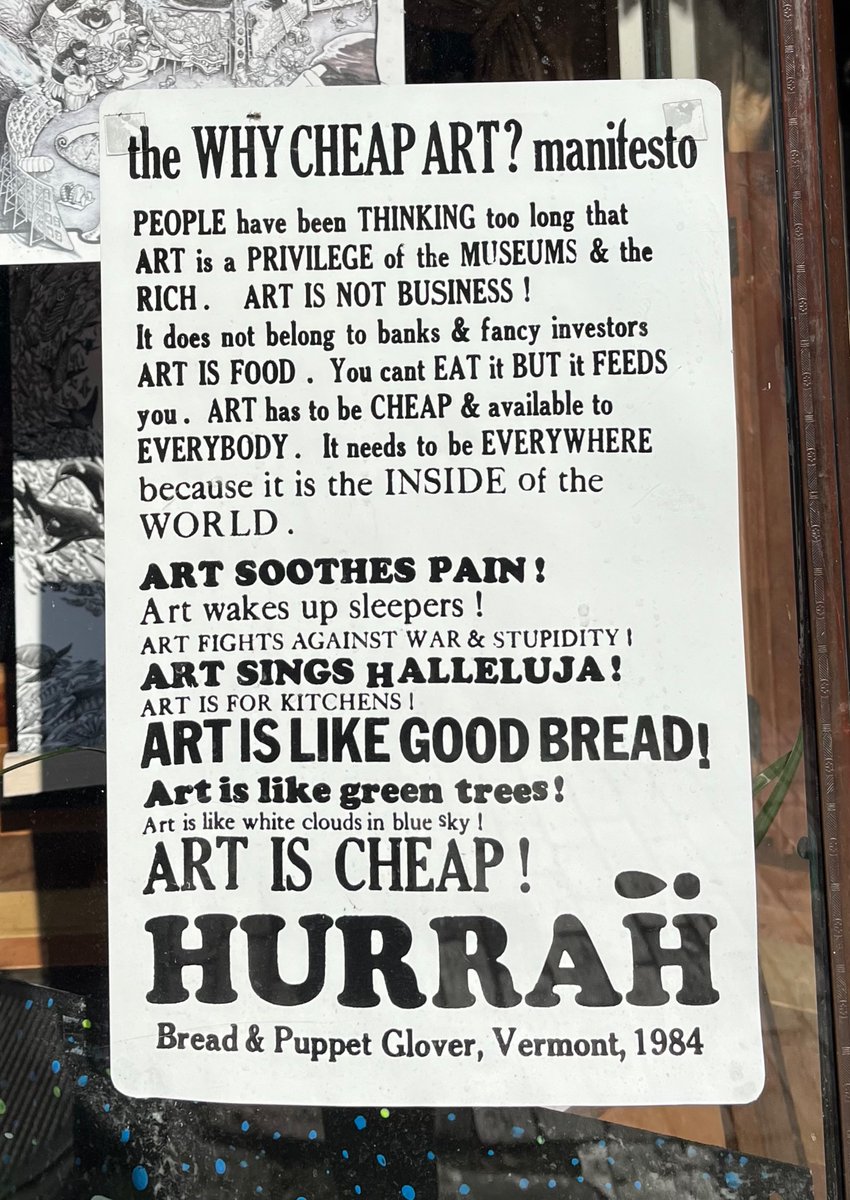 the WHY CHEAP ART? manifesto
PEOPLE have been THINKING too long that
ART is a PRIVILEGE of the MUSEUMS & the
RICH. ART IS NOT BUSINESS !
It does not belong to banks & fancy investors
ART IS FOOD. You cant EAT it BUT it FEEDS
you. ART has to be CHEAP & available to
EVERYBODY. It needs to be EVERYWHERE
because it is the INSIDE of the
WORLD.
ART SOOTHES PAIN!
Art wakes up sleepers !
ART FIGHTS AGAINST WAR & STUPIDITY !
ART SINGS HALLELUJA!
ART IS FOR KITCHENS !
ART IS LIKE GOOD BREAD!
Art is like green trees!
Art is like white clouds in blue sky !
ART IS CHEAP !
HURRAH
Bread & Puppet Glover, Vermont, 1984